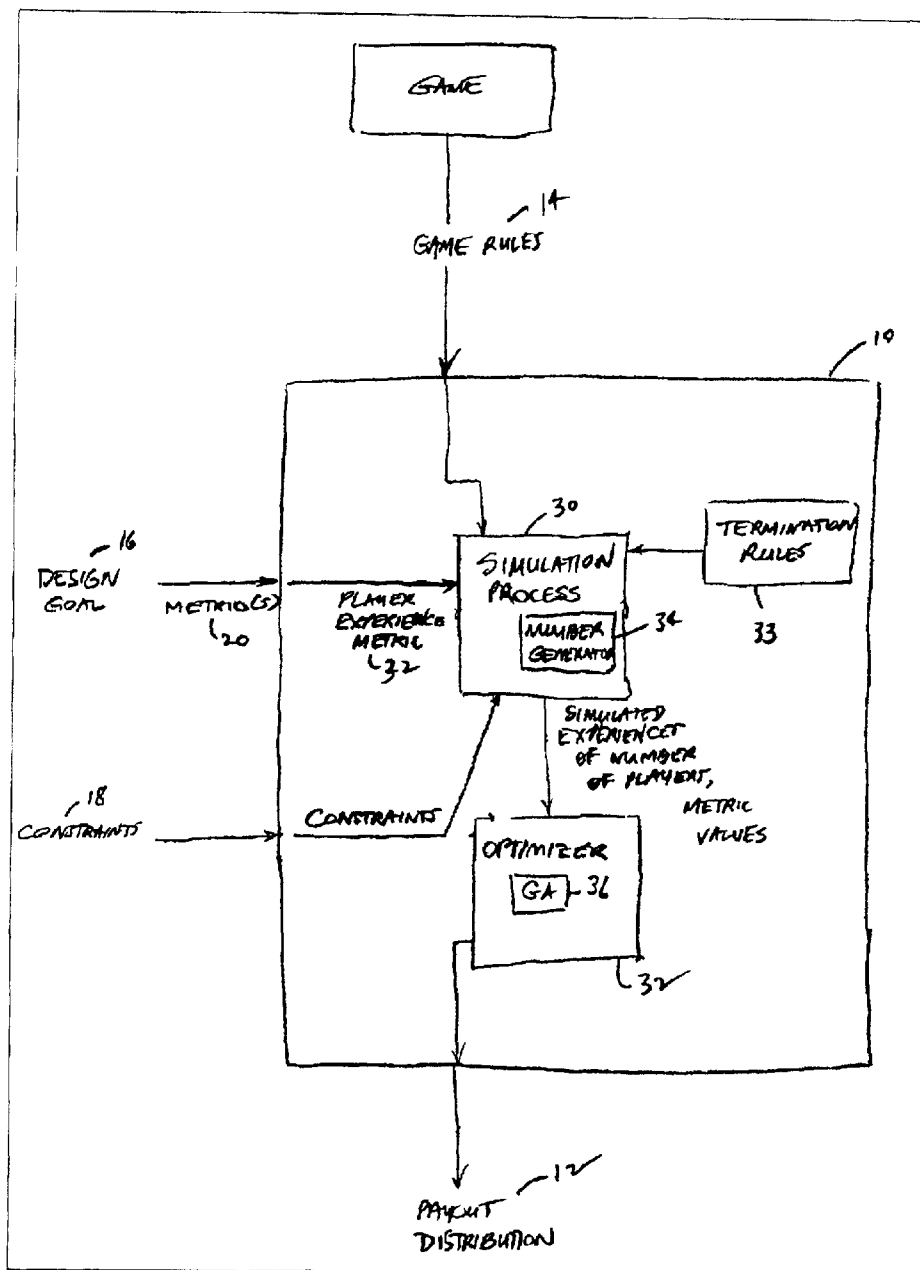 GAME
14
GAME RULES
10
30
SIMULATION
PROCESS
NUMBER
GENERATOR
34
TERMINATION
RULES
33
16
DESIGN
GOAL
METRIC(S)
20
PLAYER
EXPERIENCE
METRIC
32
SIMULATED
EXPERIENCES
OF NUMBER
OF PLAYERS,
METRIC
VALUES
18
CONSTRAINTS
CONSTRAINTS
OPTIMIZER
GA
36
32
12
PAYOUT
DISTRIBUTION